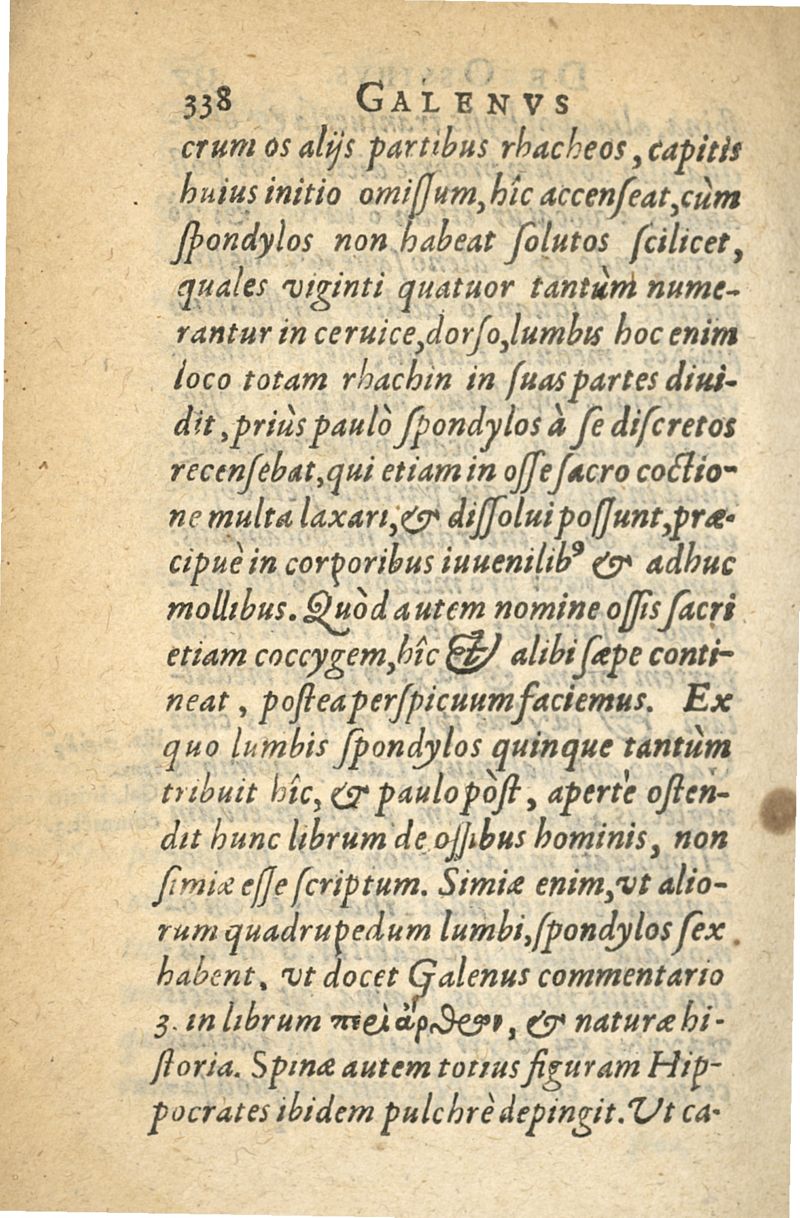 338 GALENVS
crum os alijs partibus rhacheos, capitis
huius initio omiſſum, hîc accenſeat, cùm
ſpondylos non habeat ſolutos ſcilicet,
quales viginti quatuor tantùm nume-
rantur in ceruice, dorſo, lumbis hoc enim
loco totam rhachin in ſuas partes diui-
dit, priùs paulò ſpondylos à ſe diſcretos
recenſebat, qui etiam in oſſe ſacro coctio-
ne multa laxari, & diſſolui poſſunt, præ-
cipuè in corporibus iuuenilibꝰ & adhuc
mollibus. Quòd autem nomine oſſis ſacri
etiam coccygem, hîc & alibi ſæpe conti-
neat, poſtea perſpicuum faciemus. Ex
quo lumbis ſpondylos quinque tantùm
tribuit hîc, & paulo pòſt, apertè oſten-
dit hunc librum de oſſibus hominis, non
ſimiæ eſſe ſcriptum. Simiæ enim, vt alio-
rum quadrupedum lumbi, ſpondylos ſex
habent, vt docet Galenus commentario
3. in librum περὶ ἄρθρων, & naturæ hi-
ſtoria. Spinæ autem totius figuram Hip-
pocrates ibidem pulchrè depingit. Ut ca-